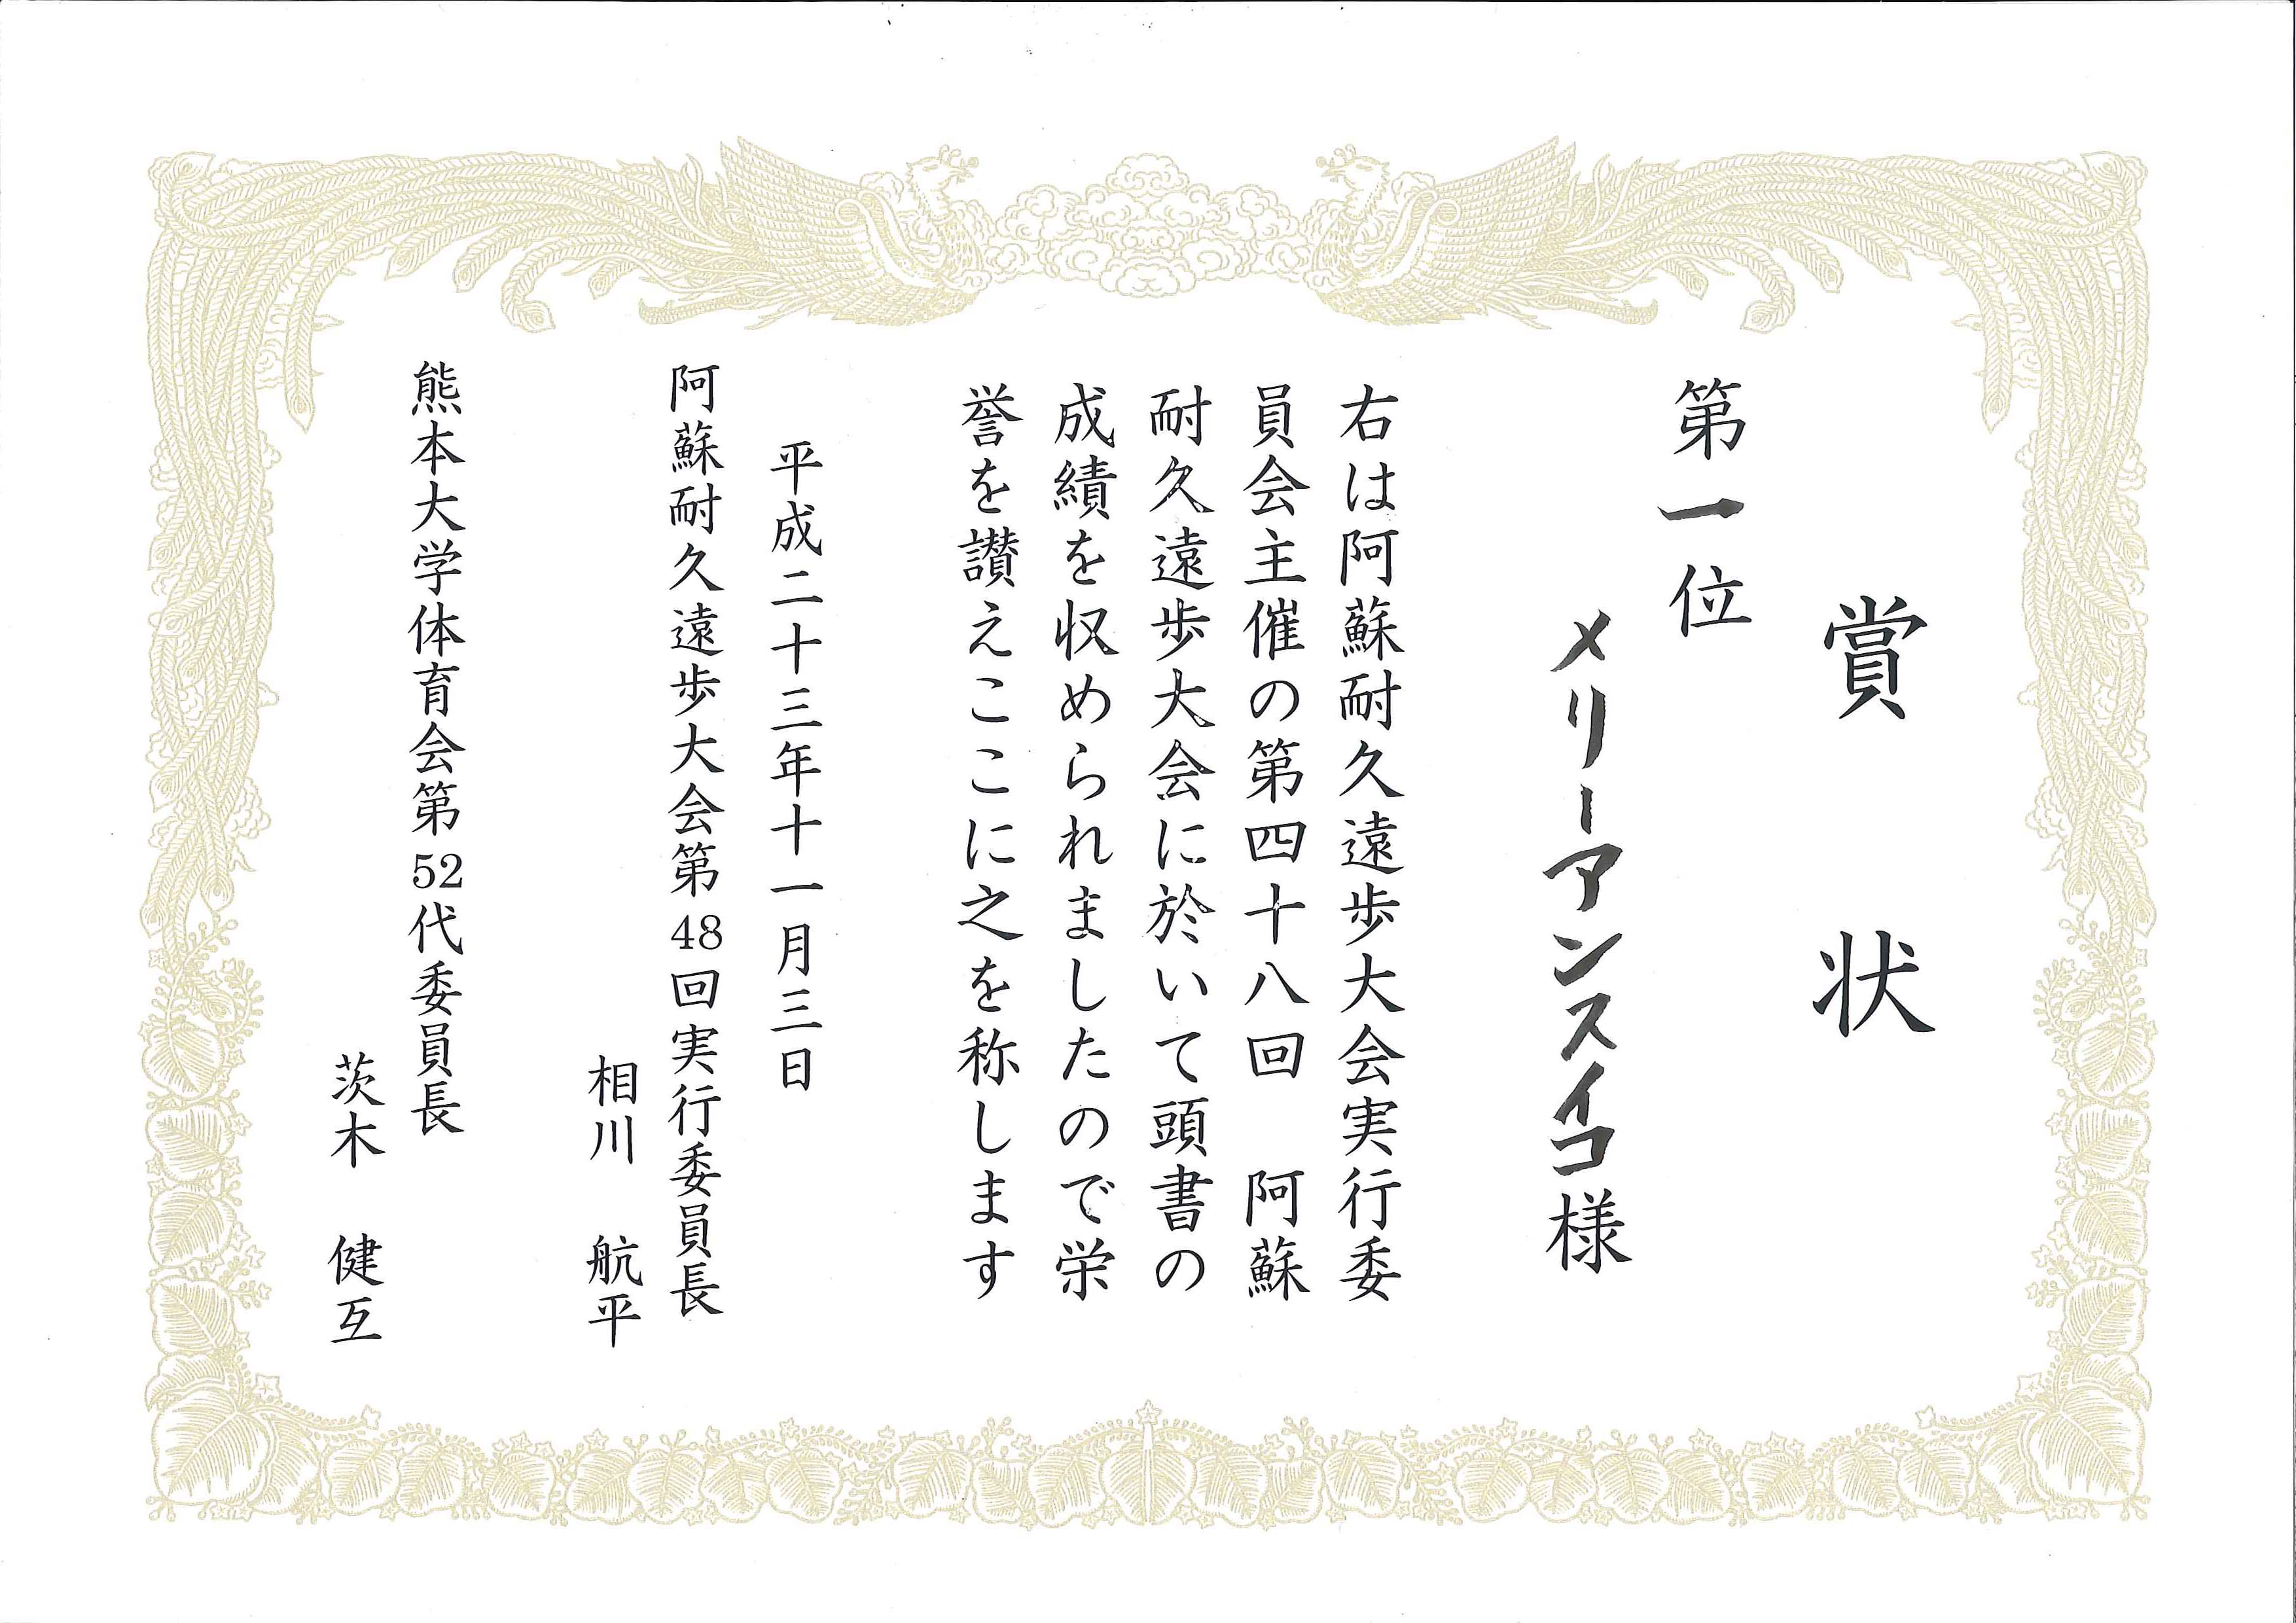 賞状
第一位
メリーアンスイコ様
右は阿蘇耐久遠歩大会実行委
員会主催の第四十八回　阿蘇
耐久遠歩大会に於いて頭書の
成績を収められましたので栄
誉を讃えここに之を称します
平成二十三年十一月三日
阿蘇耐久遠歩大会第48回実行委員長
相川　航平
熊本大学体育会第52代委員長
茨木　健互